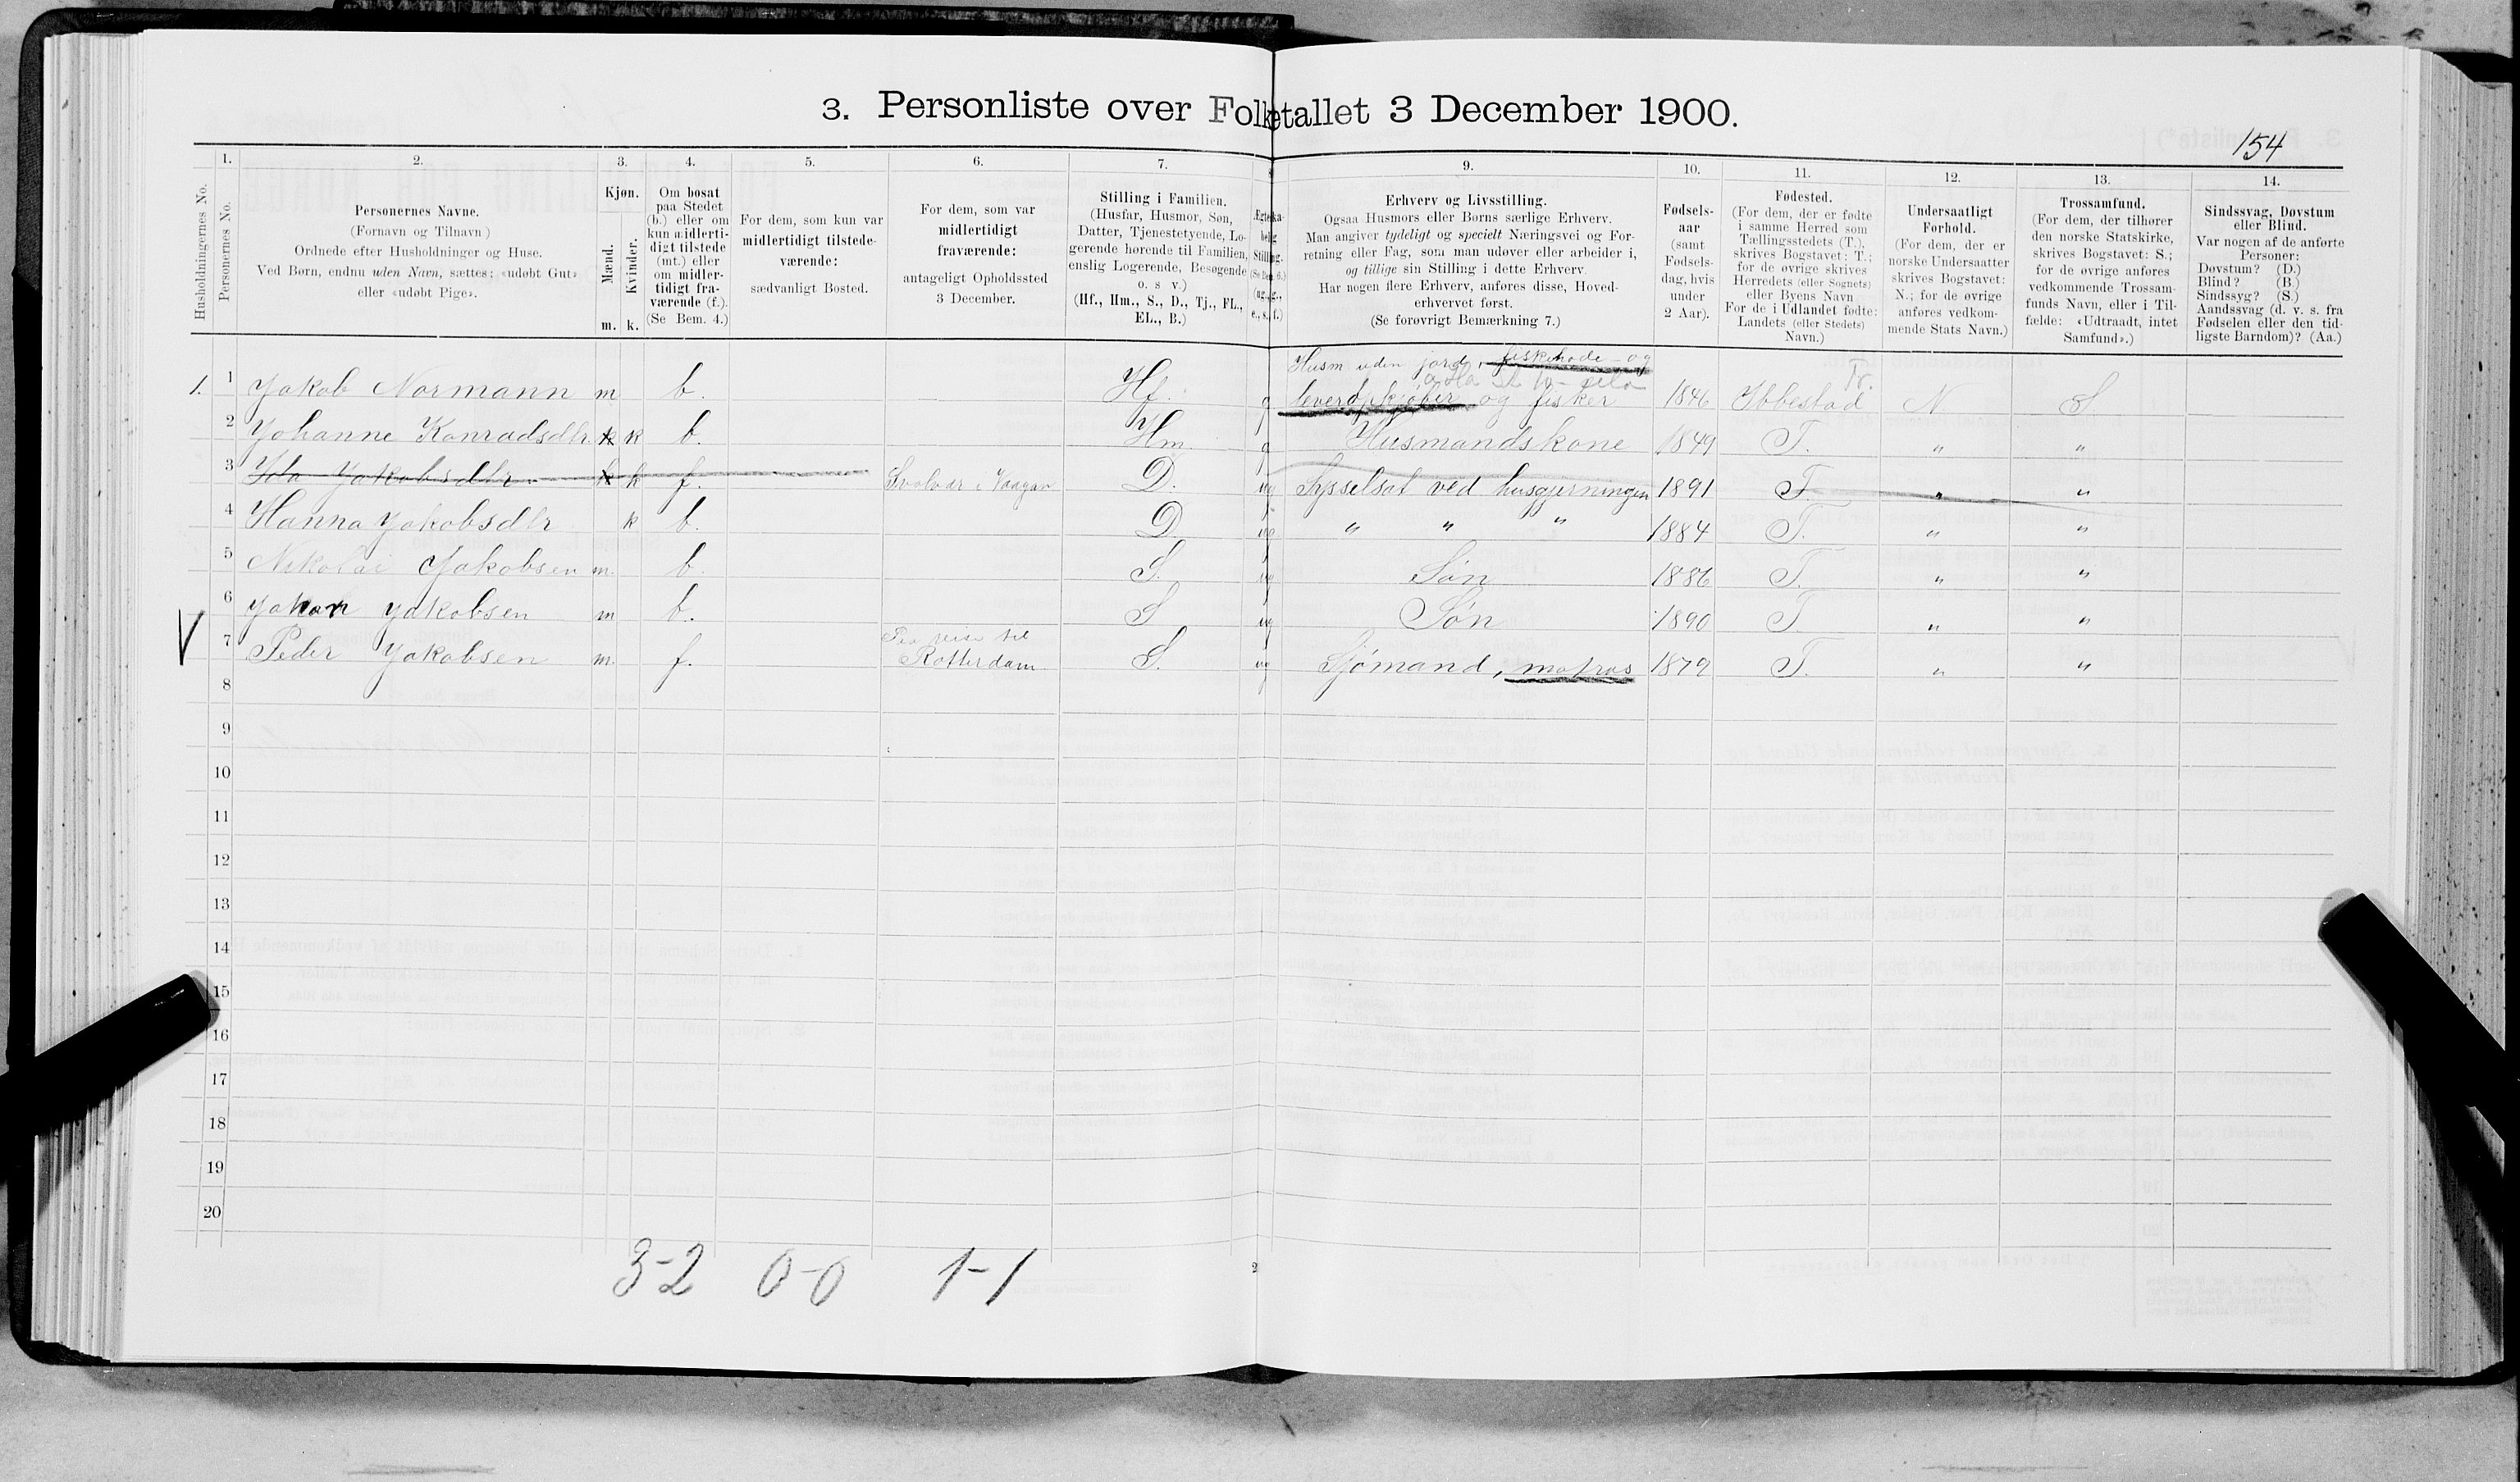 3. Personliste over Folketallet 3 December 1900.
154
Husholdningernes No.
1.
Personernes No.
2.
Personernes Navne.
(Fornavn og Tilnavn)
Ordnede efter Husholdninger og Huse.
Ved Børn, endnu uden Navn, sættes: «udøbt Gut»
eller «udøbt Pige».
3.
Kjøn.
Mænd.
Kvinder.
m. k.
4.
Om bosat
paa Stedet
(b.) eller om
kun midlerti-
digt tilstede
(mt.) eller
om midler-
tidigt fra-
værende (f.).
(Se Bem. 4.)
5.
For dem, som kun var
midlertidigt tilstede-
værende:
sædvanligt Bosted.
6.
For dem, som var
midlertidigt
fraværende:
antageligt Opholdssted
3 December.
7.
Stilling i Familien.
(Husfar, Husmor, Søn,
Datter, Tjenestetyende, Lo-
gerende hørende til Familien,
enslig Logerende, Besøgende
o. s v.)
(Hf., Hm., S., D., Tj., FL.,
EL., B.)
9.
Erhverv og Livsstilling.
Ogsaa Husmors eller Børns særlige Erhverv.
Man angiver tydeligt og specielt Næringsvei og For-
retning eller Fag, som man udøver eller arbeider i,
og tillige sin Stilling i dette Erhverv.
Har nogen flere Erhverv, anføres disse, Hoved-
erhvervet først.
(Se forøvrigt Bemærkning 7.)
10.
Fødsels-
aar
(samt
Fødsels-
dag, hvis
under
2 Aar).
11.
Fødested.
(For dem, der er fødte
i samme Herred som
Tællingsstedets (T.),
skrives Bogstavet: T.;
for de øvrige skrives
Herredets (eller Sognets)
eller Byens Navn
For de i Udlandet fødte:
Landets (eller Stedets)
Navn.)
12.
Undersaatligt
Forhold.
(For dem, der er
norske Undersaatter
skrives Bogstavet:
N.; for de øvrige
anføres vedkom-
mende Stats Navn.)
13.
Trossamfund.
(For dem, der tilhører
den norske Statskirke,
skrives Bogstavet: S.;
for de øvrige anføres
vedkommende Trossam-
funds Navn, eller i Til-
fælde: «Udtraadt, intet
Samfund».)
14.
Sindssvag, Døvstum
eller Blind.
Var nogen af de anførte
Personer:
Døvstum? (D.)
Blind? (B.)
Sindssyg? (S.)
Aandssvag (d. v. s. fra
Fødselen eller den tid-
ligste Barndom)? (Aa.)
Husm uden jord, fiskehode- og
Tr.
1. 1 Jakob Normann m b. Hf. g leveropkjøber og fisker 1846 Ibbestad N S
2 Johanne Konradsdtr. k k b. Hm g Husmandskone 1849 T. " "
3 Ida Jakobsdtr. k k f. Svolvær i Vaagan D. ug Sysselsat ved husgjerningen 1891 T. " "
4 Hanna Jakobsdtr k b. D. ug " " " 1884 T. " "
5 Nikolai Jakobsen m. b. S. ug Søn 1886 T. " "
6 Johan Jakobsen m b. S ug Søn 1890 T " "
Paa reise til
V 7 Peder Jakobsen m. f. Rotterdam S. ug Sjømand, matros 1879 T. " "
8
9
10
11
12
13
14
15
16
17
18
19
20
3-2 0-0 1-1
2